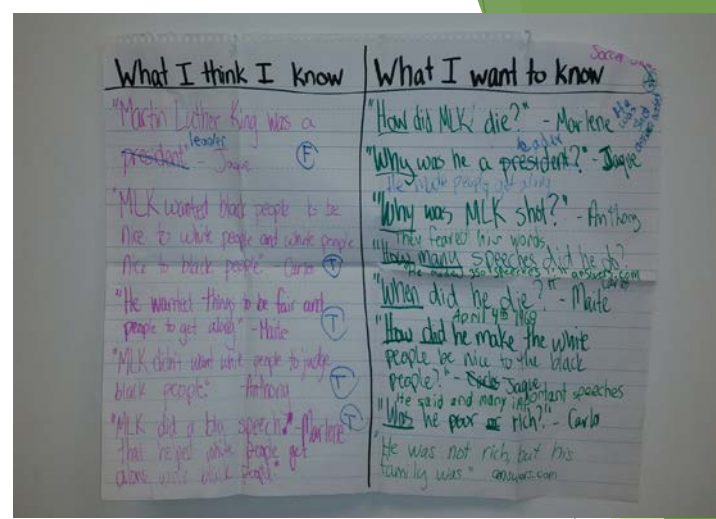 What I think I know
"Martin Luther King was a
leader
president" - Jaque F
"MLK wanted black people to be
nice to white people and white people
nice to black people" - Carlo T
"He wanted things to be fair and
people to get along" - Maite T
"MLK didn't want white people to judge
black people" - Anthony T
"MLK did a big speech" - Marlene T
that helped white people get
along with black people."
What I want to know
"How did MLK die?" - Marlene
He was shot
leader
"Why was he a president?" - Jaque
He made people get along
"Why was MLK shot?" - Anthony
They feared his words
"How many speeches did he do?
"He made 350 speeches" answers.com
Carlo
"When did he die?" - Maite
April 4th 1968
"How did he make the white
people be nice to the black
people?" - Jaque
He said and many important speeches
"Was he poor or rich?" - Carlo
"He was not rich, but his
family was" answers.com